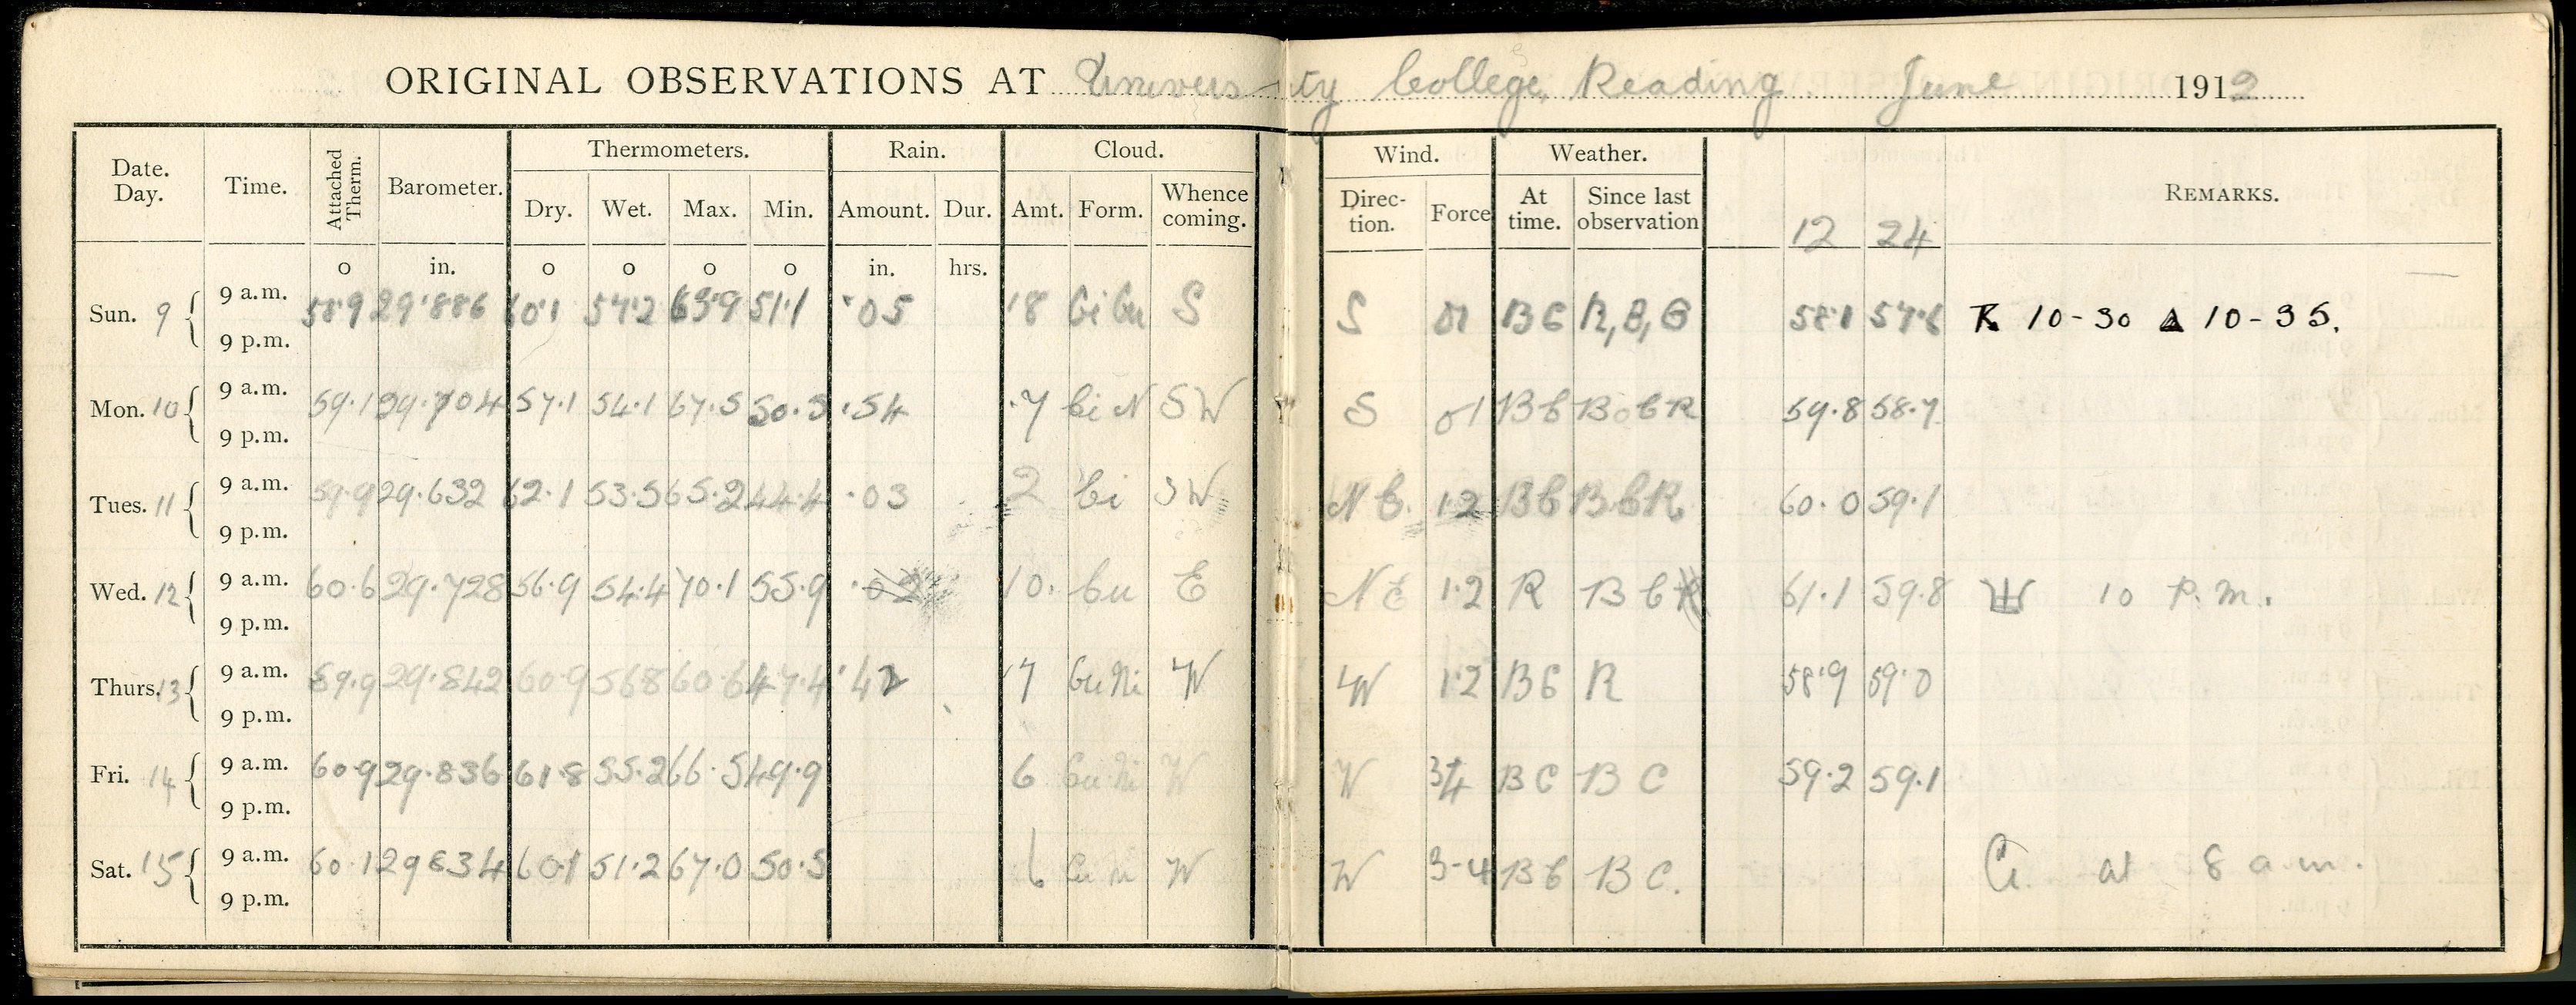 ORIGINAL OBSERVATIONS AT University College, Reading June 1912
Date. Day. Time. Attached Therm. Barometer. Thermometers. Rain. Cloud. Wind. Weather. REMARKS.
Dry. Wet. Max. Min. Amount. Dur. Amt. Form. Whence coming. Direc- tion. Force At time. Since last observation 12 24
o in. o o o o in. hrs.
Sun. 9 9 a.m. 58.9 29.886 60.1 57.2 63.9 51.1 .05 8 Ci Cu S S 01 BC R, B, C 58.1 57.6 10-30 10-35.
9 p.m.
Mon. 10 9 a.m. 59.1 29.704 57.1 54.1 67.5 50.5 .54 .7 Ci N SW S 01 BC B o C R 59.8 58.7
9 p.m.
Tues. 11 9 a.m. 59.9 29.632 62.1 53.5 65.2 44.4 .03 2 Ci SW N E. 1.2 BC B.C R. 60.0 59.1
9 p.m.
Wed. 12 9 a.m. 60.6 29.728 56.9 54.4 70.1 55.9 10. Cu E NE 1.2 R B C 61.1 59.8 10 P.m.
9 p.m.
Thurs. 13 9 a.m. 59.9 29.842 60.9 56.8 60.6 47.4 .42 7 Cu Ni W W 1.2 BC R 58.9 59.0
9 p.m.
Fri. 14 9 a.m. 60.9 29.836 61.8 55.2 66.5 49.9 6 Cu Ni W W 3 4 BC BC 59.2 59.1
9 p.m.
Sat. 15 9 a.m. 60.1 60.1 51.2 67.0 50.5 6 Cu ni W W 3-4 BC BC. at 8 a.m.
9 p.m.